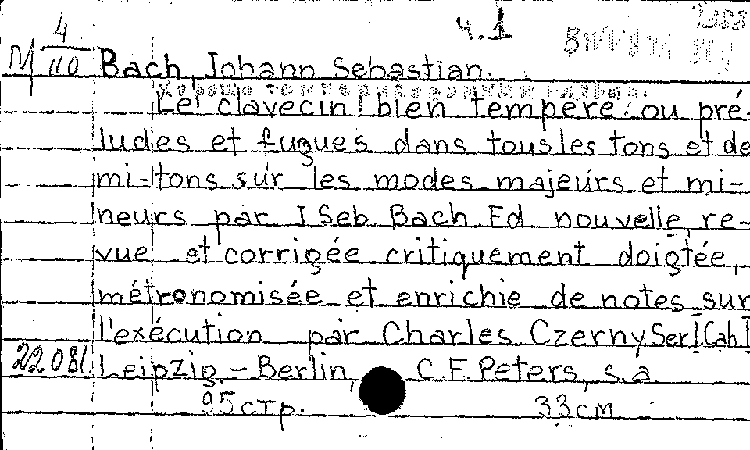 ч.1
М 4/110 Bach, Johann Sebastian.
Le clavecin bien tempéré ou pré-
ludes et fugues dans tous les tons et de
mi-tons sur les modes majeurs et mi-
neurs par J. Seb. Bach. Ed. nouvelle, re-
vue et corrigée critiquement doigtée,
métronomisée et enrichie de notes sur
l'exécution par Charles Czerny Ser I Cah I
22081 Leipzig - Berlin, C. F. Peters, s.a.
95 стр. 33 см